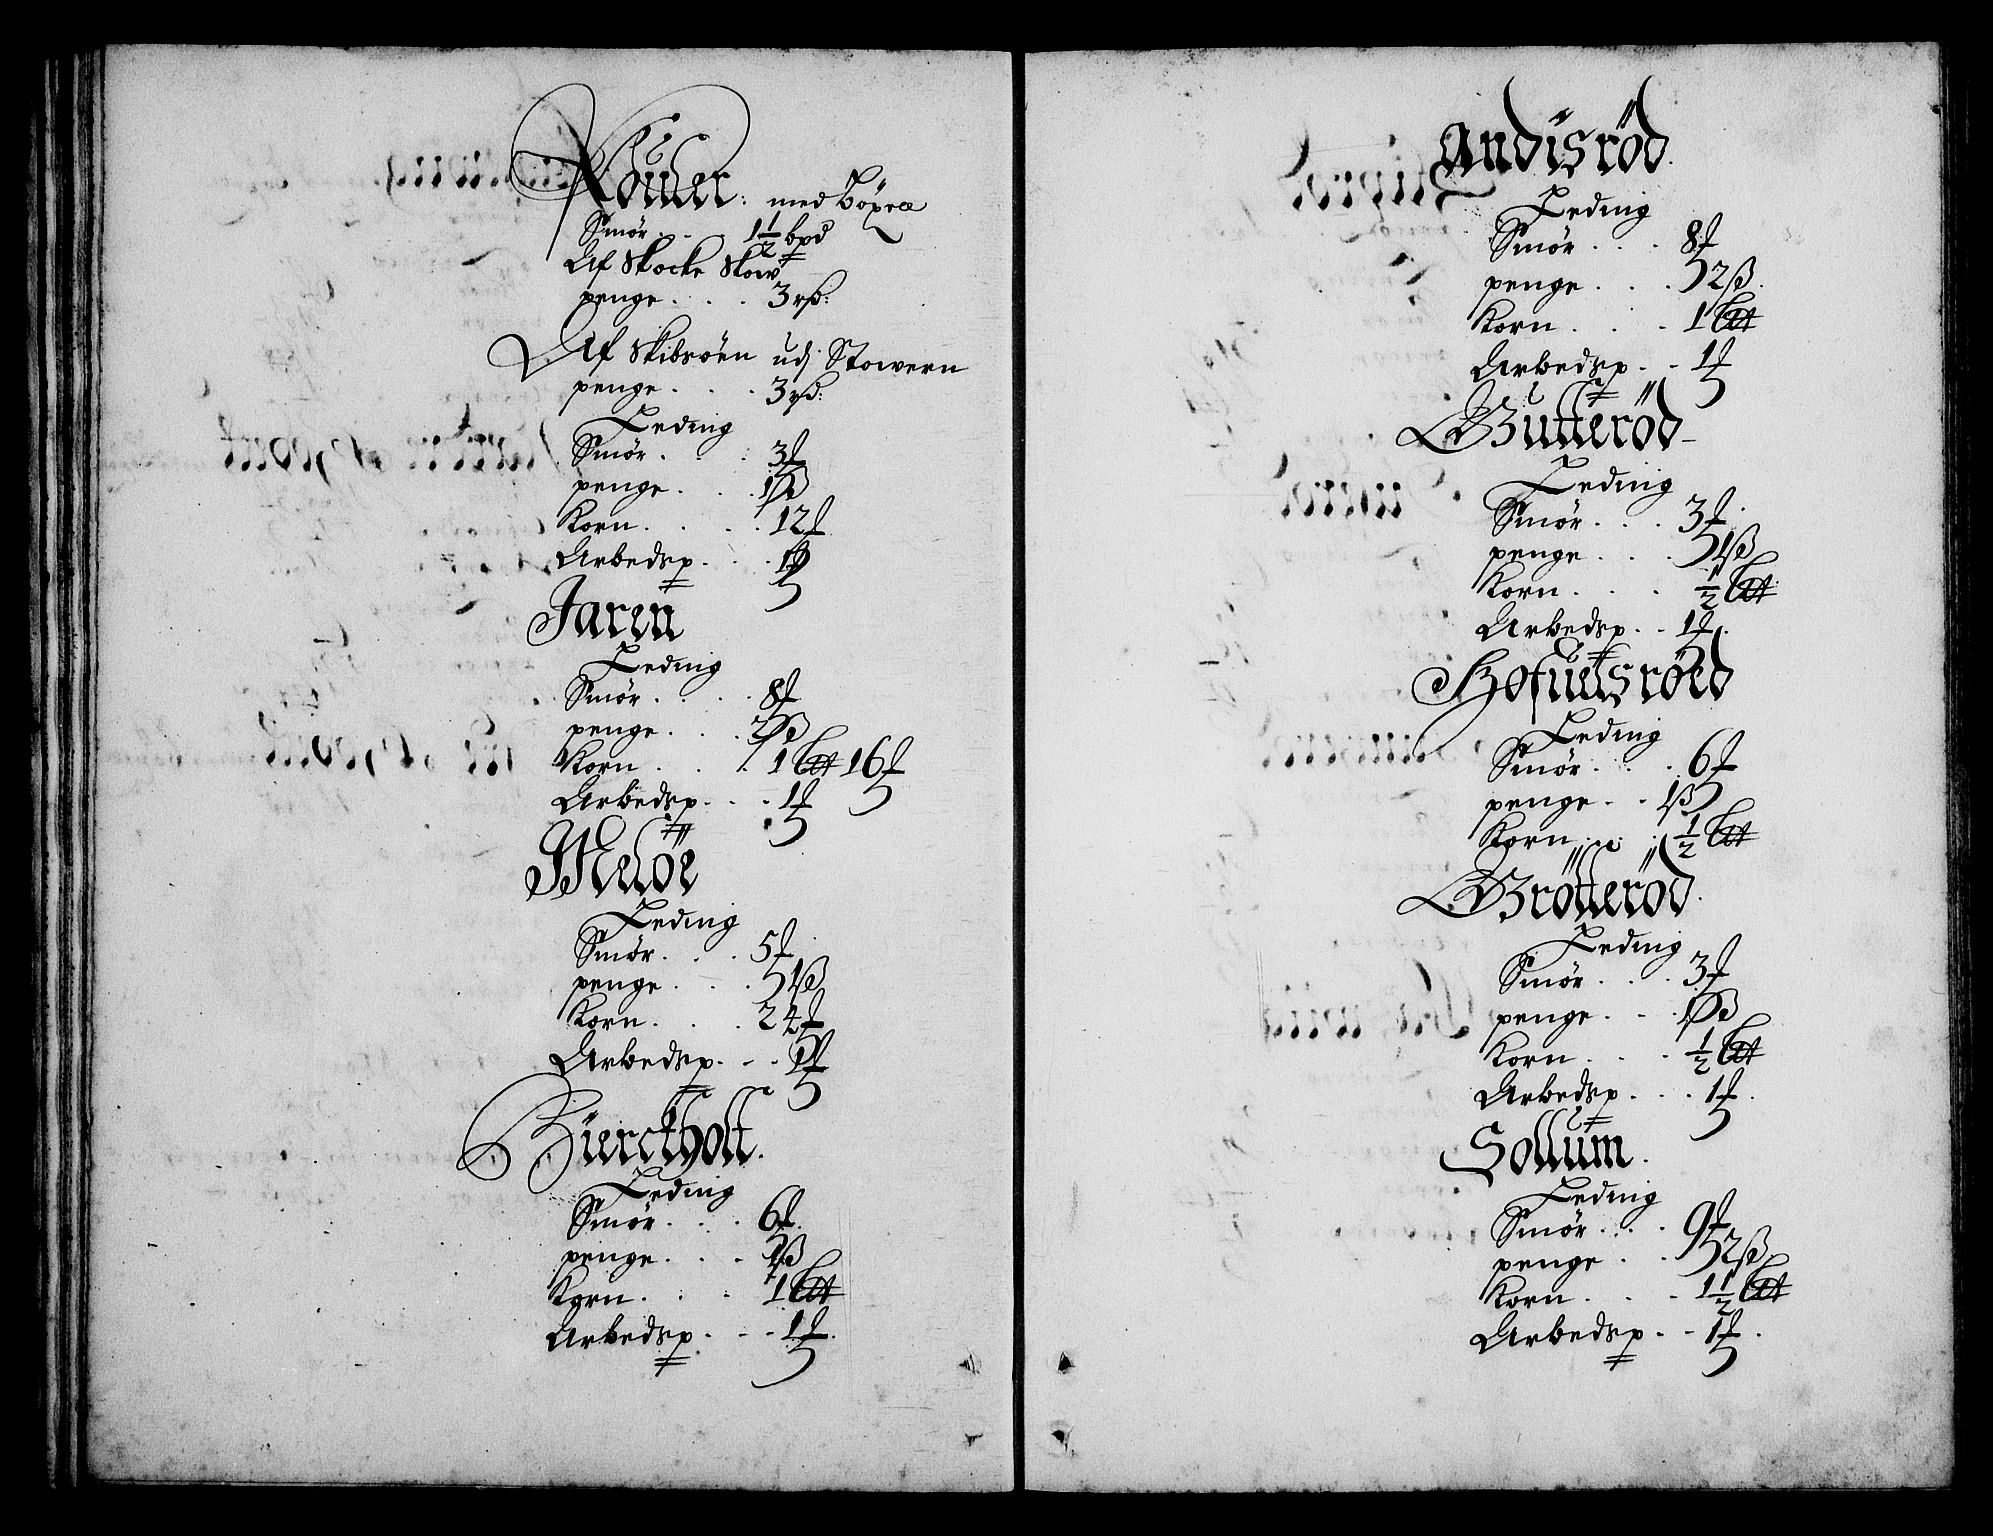 med böxel
Smör . . . 1½ bpd
Af Skocke Skow
penge . . . 3 rß:
Af Skibsöen udj Stowern
penge . . . 3 rß:
Leding
Smör . . . 3
penge . . . 1ß
Korn . . . 12
Arbedsp. . . 1
Jaren
Leding
Smör . . . 8
penge . . . 2ß
Korn . . . 1 16
Arbedsp. . . 1
Meløe
Leding
Smör . . . 5
penge . . . 1ß
Korn . . . 24
Arbedsp. . . 1
Bierckholt.
Leding
Smör . . . 6
penge . . . 1ß
Korn . . . 1
Arbedsp. . . 1
Andisröd.
Leding
Smör . . . 8
penge . . . 2ß.
Korn . . . 1
Arbedsp. . . 1
Gutteröd
Leding
Smör . . . 3
penge . . . 1ß
Korn . . . ½
Arbedsp. . . 1
Leding
Smör . . . 6
penge . . 1ß
Korn . . . ½
Grötteröd.
Leding
Smör . . . 3
penge . . . 1ß
Korn . . . ½
Arbedsp. . . . 1
Sollum.
Leding
Smör . . . 9
penge . . . 2ß.
Korn . . . 1½
Arbedsp. . . 1